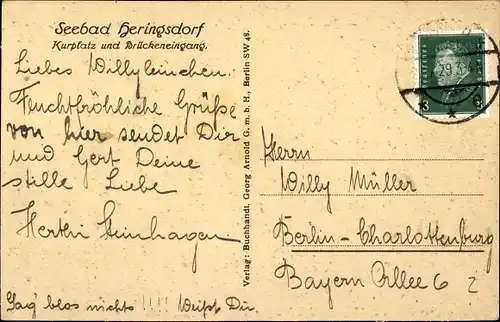 Seebad Heringsdorf
Kurplatz und Brückeneingang.
Liebes Willyleinchen.
Feuchtfröhliche Grüße
von hier sendet Dir
und Gert Deine
stille Liebe
Herthi Steinhagen
Sag' blos nichts !!!! Weißt Dir.
Verlag: Buchhandl. Georg Arnold G. m. b. H., Berlin SW 48.
Herrn
Willy Müller
Berlin-Charlottenburg
Bayern Allee 6